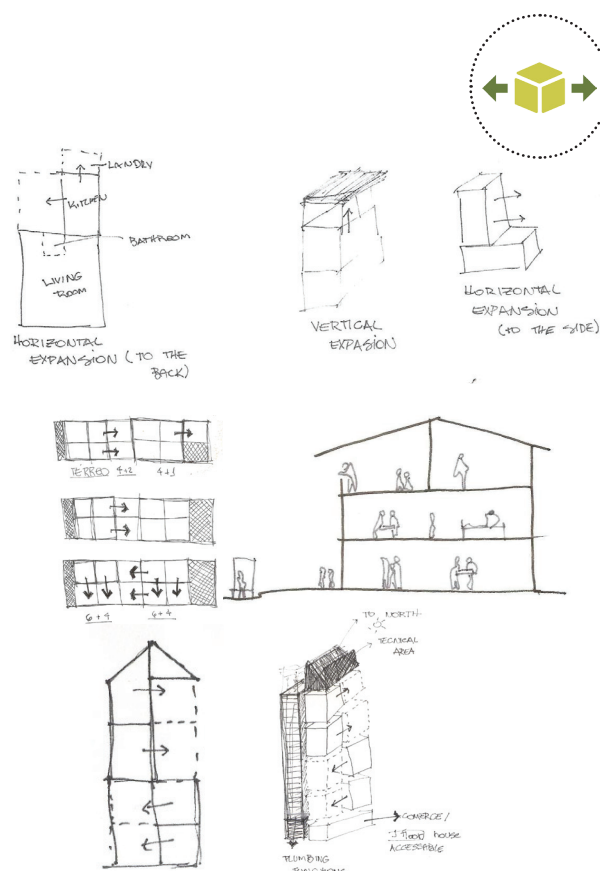 LANDRY
KITCHEN
BATHROOM
LIVING
ROOM
HORIZONTAL
EXPANSION (TO THE
BACK)
VERTICAL
EXPASION
HORIZONTAL
EXPANSION
(TO THE SIDE)
TÉRREO 4+2 4+1
6+4 6+4
TO NORTH
TECNICAL
AREA
COMERCE/
house
ACCESSABLE
PLUMBING